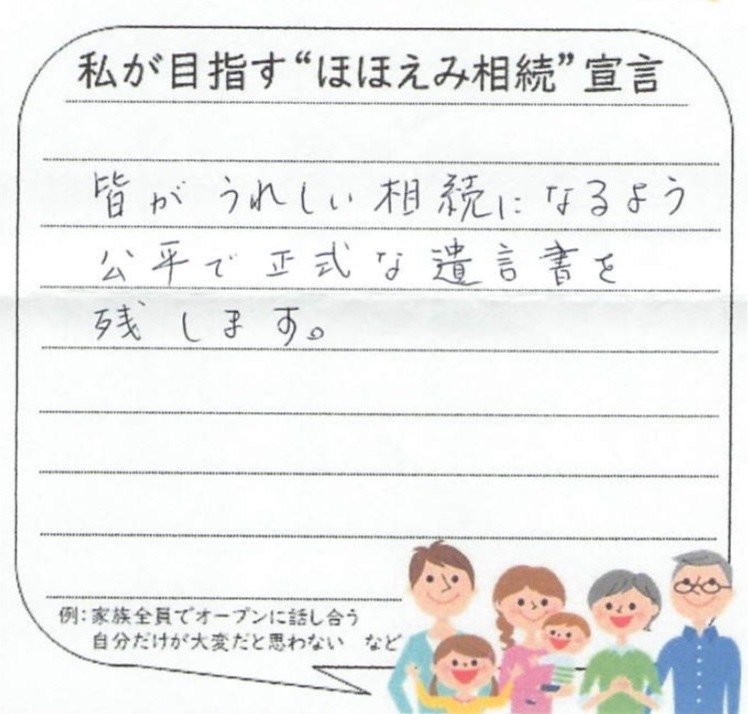 私が目指す“ほほえみ相続”宣言
皆がうれしい相続になるよう
公平で正式な遺言書を
残します。
例：家族全員でオープンに話し合う
自分だけが大変だと思わない　など